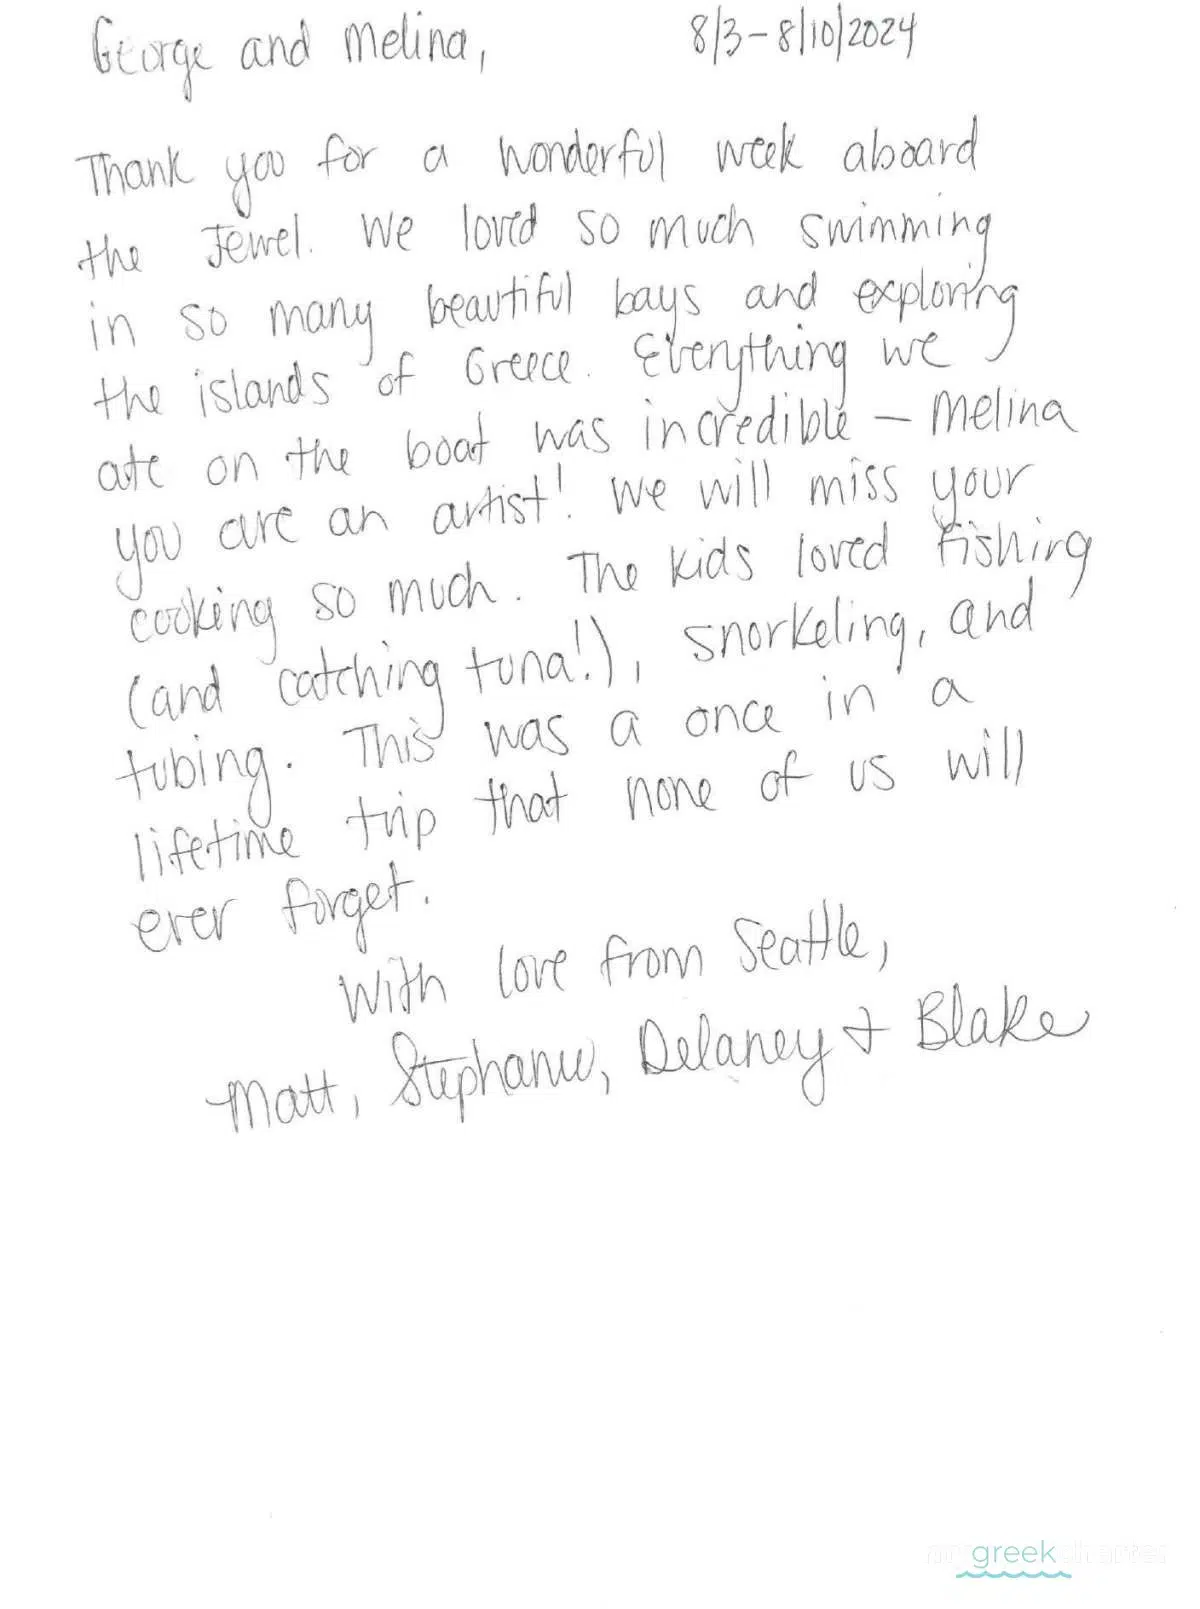 George and Melina, 8/3-8/10/2024
Thank you for a wonderful week aboard
the Jewel. We loved so much swimming
in so many beautiful bays and exploring
the islands of Greece. Everything we
ate on the boat was incredible - Melina
you are an artist! We will miss your
cooking so much. The kids loved fishing
(and catching tuna!), snorkeling, and
tubing. This was a once in a
lifetime trip that none of us will
ever forget.
With love from Seattle,
Matt, Stephanie, Delaney & Blake
my greek charter